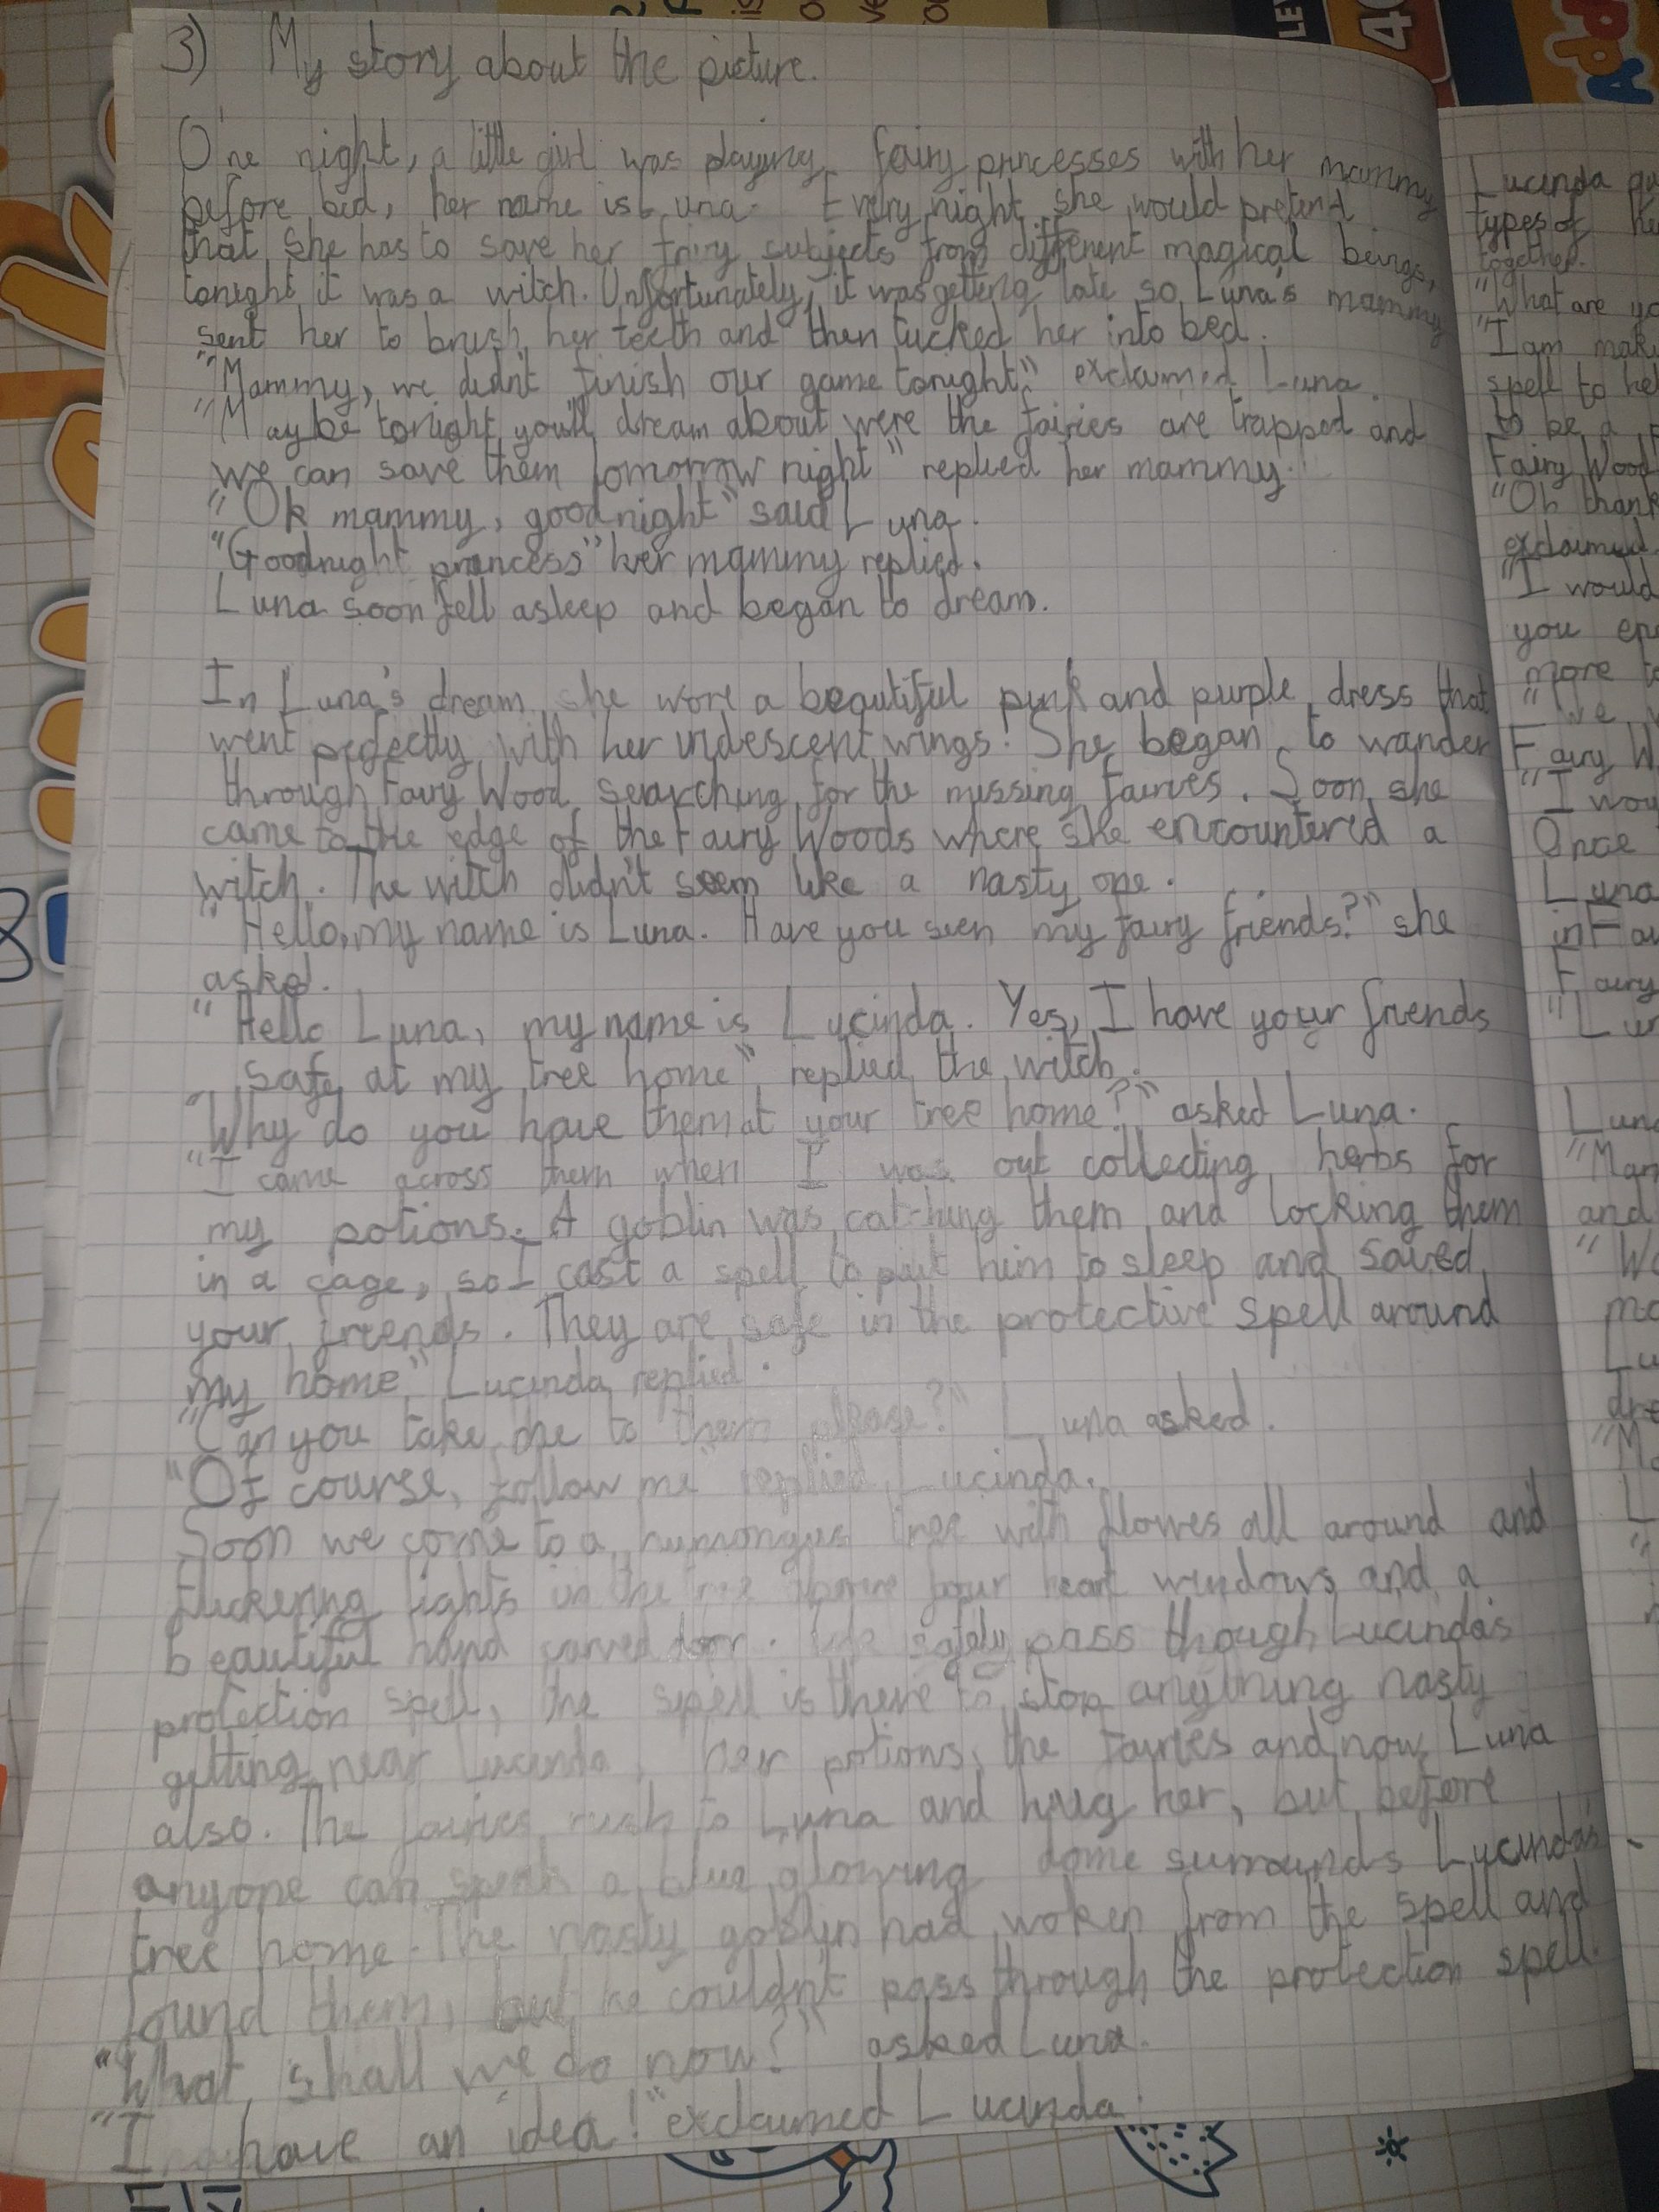 3) My story about the picture.
One night, a little girl was playing fairy princesses with her mammy
before bed, her name is Luna. Every night she would pretend
that she has to save her fairy subjects from different magical beings,
tonight it was a witch. Unfortunately, it was getting late so Luna's mammy
sent her to brush her teeth and then tucked her into bed.
"Mammy, we didn't finish our game tonight" exclaimed Luna.
"Maybe tonight you'll dream about were the fairies are trapped and
we can save them tomorrow night" replied her mammy.
"Ok mammy, goodnight" said Luna.
"Goodnight princess" her mammy replied.
Luna soon fell asleep and began to dream.
In Luna's dream she wore a beautiful pink and purple dress that
went perfectly with her iridescent wings! She began to wander
through Fairy Wood searching for the missing fairies. Soon she
came to the edge of the Fairy Woods where she encountered a
witch. The witch didn't seem like a nasty one.
"Hello, my name is Luna. Have you seen my fairy friends?" she
asked.
"Hello Luna, my name is Lucinda. Yes, I have your friends
safe at my tree home", replied the witch.
"Why do you have them at your tree home?" asked Luna.
"I came across them when I was out collecting herbs for
my potions. A goblin was catching them and locking them
in a cage, so I cast a spell to put him to sleep and saved
your friends. They are safe in the protective spell around
my home" Lucinda replied.
"Can you take me to them please?" Luna asked.
"Of course, follow me" replied Lucinda.
Soon we come to a humongus tree with flowes all around and
flickering lights in the tree four heart windows and a
beautiful hand carved door. We safely pass though Lucinda's
protection spell, the spell is there to stop anything nasty
getting near Lucinda, her potions, the fairies and now Luna
also. The fairies rush to Luna and hug her, but before
anyone can speak a blue glowing dome surrounds Lucinda's
tree home. The nasty goblin had woken from the spell and
found them, but he couldn't pass through the protection spell.
"What shall we do now?" asked Luna.
"I have an idea!" exclaimed Lucinda.
Lucinda
types of
together.
"What are
"I am
spell to
to be a
Fairy Wood
"Oh
exclaimed
"I would
you
more
Fairy
"I
Once
Luna
in
Fairy
and